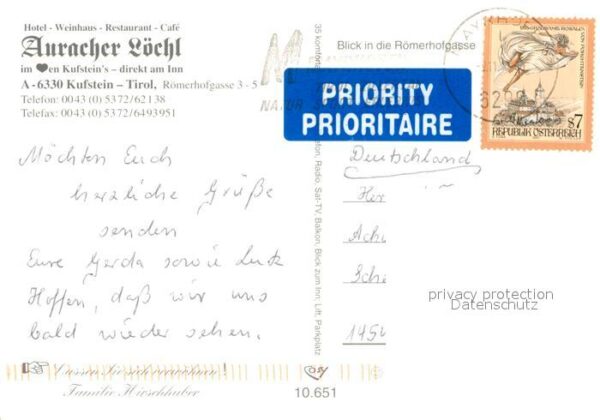 Hotel - Weinhaus - Restaurant - Café
Auracher Löchl
im ♥en Kufstein's – direkt am Inn
A - 6330 Kufstein – Tirol, Römerhofgasse 3 - 5
Telefon: 0043 (0) 5372/62138
Telefax: 0043 (0) 5372/6493951
Möchten Euch
herzliche Grüße
senden
Eure Gerda sowie
Hoffen, daß wir uns
bald wieder sehen.
Lassen Sie sich verwöhnen!
Familie Hirschhuber
35 Komforta
Telefon, Radio, Sat-TV, Balkon, Blick zum Inn; Lift, Parkplatz
10.651
Blick in die Römerhofgasse
PRIORITY
PRIORITAIRE
REPUBLIK ÖSTERREICH
s7
Deutschland
Her
Achi
Sche
privacy protection
Datenschutz